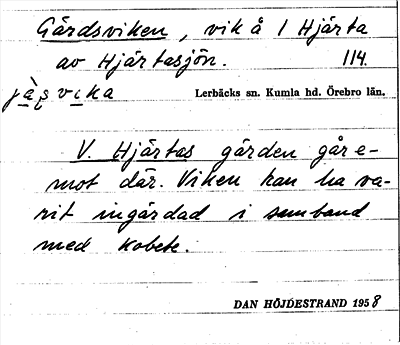 Gårdsviken, vik å 1 Hjärta
av Hjärtasjön. 114.
jàṣvika Lerbäcks sn. Kumla hd. Örebro län.
V. Hjärtas gården går e-
mot där. Viken kan ha va-
rit ingärdad i samband
med kobete.
DAN HÖJDESTRAND 1958